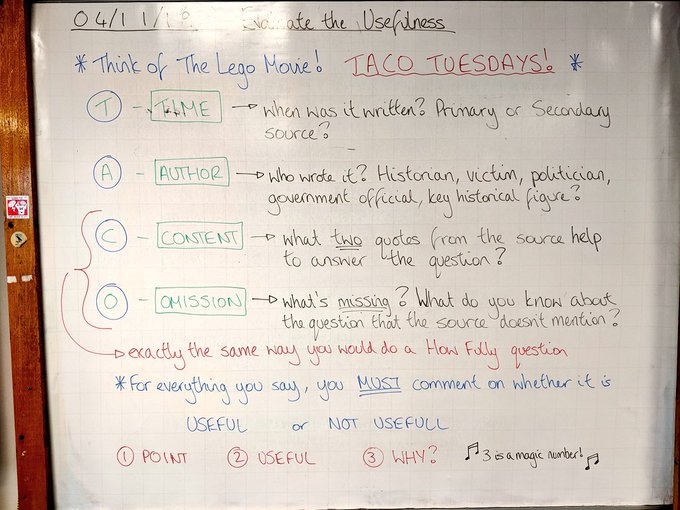 04/11/19 Evaluate the Usefulness
* Think of The Lego Movie! TACO TUESDAYS! *
T - TIME → when was it written? Primary or Secondary
source?
A - AUTHOR → who wrote it? Historian, victim, politician,
government official, key historical figure?
C - CONTENT → what two quotes from the source help
to answer the question?
O - OMISSION → what's missing? What do you know about
the question that the source doesn't mention?
→ exactly the same way you would do a How Fully question
* For everything you say, you MUST comment on whether it is
USEFUL or NOT USEFULL
① POINT ② USEFUL ③ WHY? ♫ 3 is a magic number! ♫